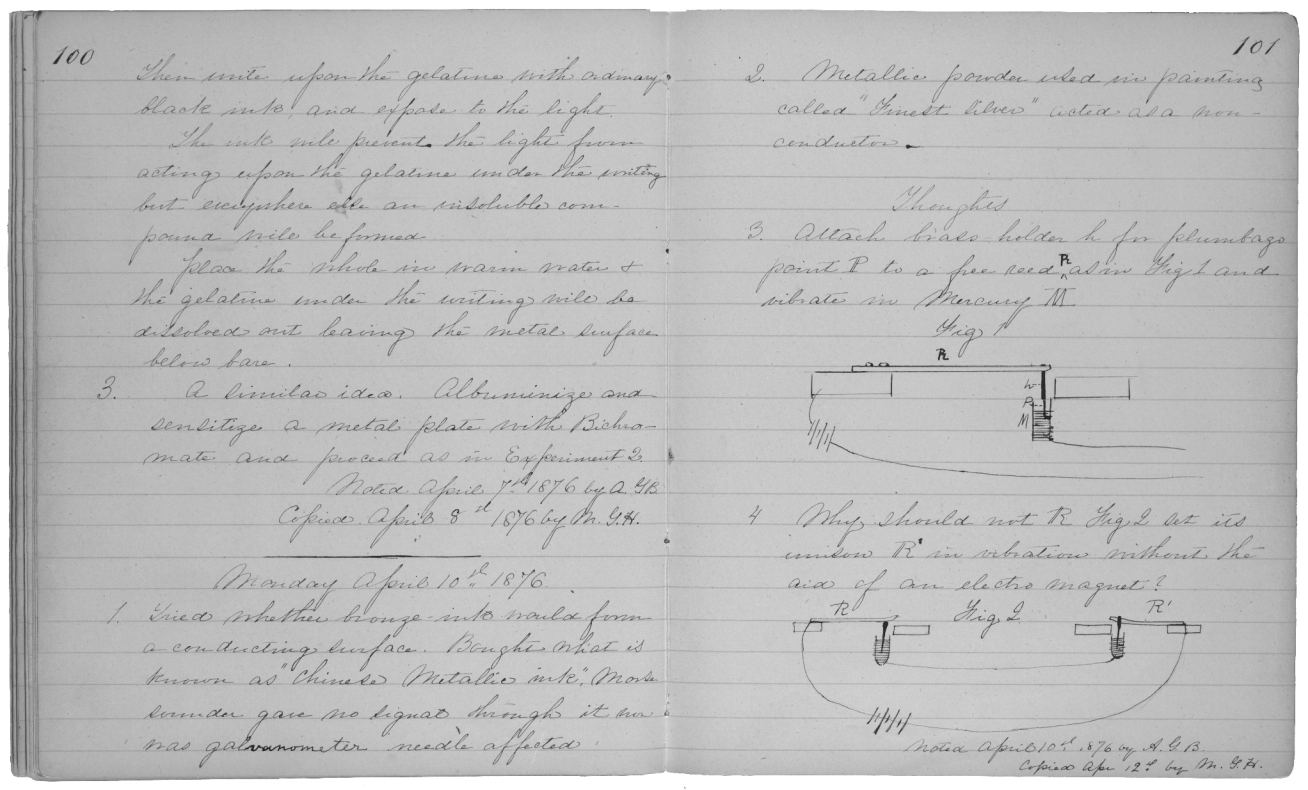 100
Then write upon the gelatine with ordinary
black ink and expose to the light.
The ink will prevent the light from
acting upon the gelatine under the writing
but everywhere else an insoluble com-
pound will be formed
Place the whole in warm water &
the gelatine under the writing will be
dissolved out leaving the metal surface
below bare.
3. A similar idea. Albuminize and
sensitize a metal plate with Bichro-
mate and proceed as in Experiment 2.
Noted April 7th 1876 by A. G B.
Copied April 8th 1876 by M. G. H.
Monday April 10th 1876.
1. Tried whether bronze ink would form
a conducting surface. Bought what is
known as "Chinese Metallic ink". Morse
sounder gave no signal through it nor
was galvanometer needle affected.
101
2. Metallic powder used in painting
called "Finest Silver" acted as a non-
conductor.
Thoughts
3. Attach brass holder h for plumbago
point P to a free reed R as in Fig 1 and
vibrate in Mercury M
Fig 1
R
h
P
M
4 Why should not R Fig 2 set its
unison R' in vibration without the
aid of an electro magnet?
R Fig 2 R'
Noted April 10th 1876 by A. G B.
Copied Apr 12th by M. G. H.